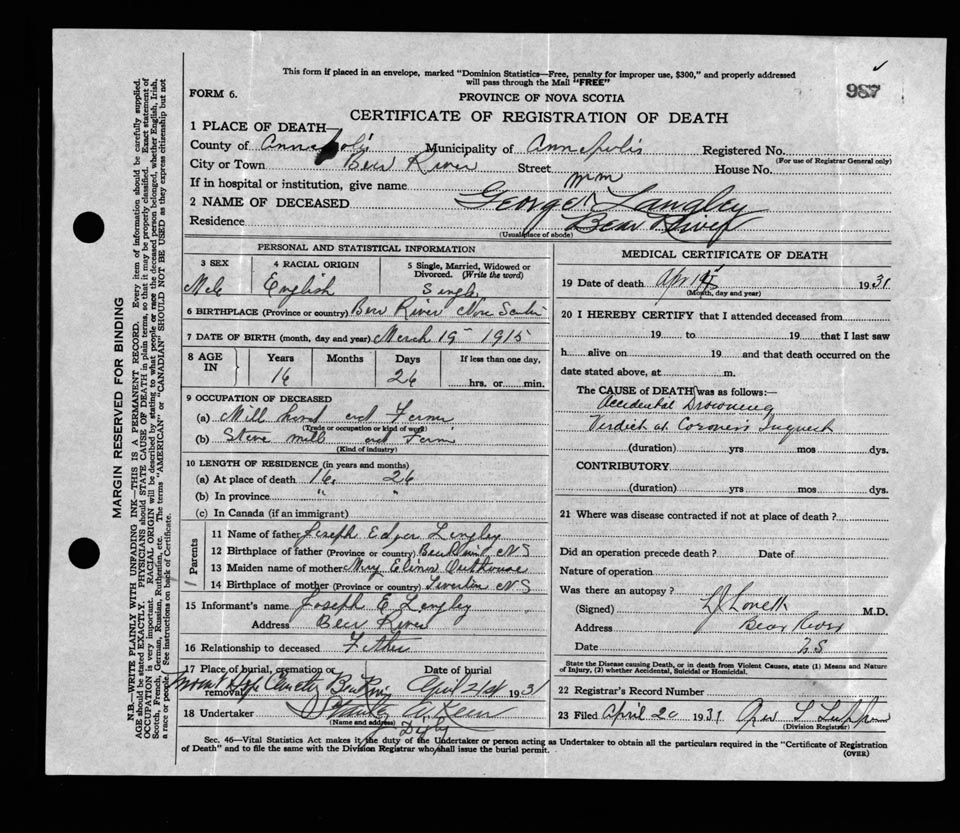 This form if placed in an envelope, marked "Dominion Statistics—Free, penalty for improper use, $300," and properly addressed
will pass through the Mail "FREE"
987
FORM 6.
PROVINCE OF NOVA SCOTIA
CERTIFICATE OF REGISTRATION OF DEATH
1 PLACE OF DEATH—
County of Annapolis Municipality of Annapolis Registered No.
(For use of Registrar General only)
City or Town Bear River Street House No.
If in hospital or institution, give name
2 NAME OF DECEASED George Wm Langley
Residence Bear River
(Usual place of abode)
PERSONAL AND STATISTICAL INFORMATION
3 SEX 4 RACIAL ORIGIN 5 Single, Married, Widowed or
Divorced. (Write the word)
Male English Single
6 BIRTHPLACE (Province or country) Bear River Nova Scotia
7 DATE OF BIRTH (month, day and year) March 19 1915
8 AGE IN Years Months Days If less than one day,
16 26 hrs. or min.
9 OCCUPATION OF DECEASED
(a) Mill hand and Farmer
(Trade or occupation or kind of work)
(b) Stave mill and Farm
(Kind of industry)
10 LENGTH OF RESIDENCE (in years and months)
(a) At place of death 16 26
(b) In province " "
(c) In Canada (if an immigrant)
Parents
11 Name of father Joseph Edgar Langley
12 Birthplace of father (Province or country) Bear River NS
13 Maiden name of mother Mary Elinor Outhouse
14 Birthplace of mother (Province or country) Tiverton NS
15 Informant's name Joseph E Langley
Address Bear River
16 Relationship to deceased Father
17 Place of burial, cremation or removal Date of burial
Mount Hope Cemetery Bear River April 21st 1931
18 Undertaker
(Name and address) Digby
MEDICAL CERTIFICATE OF DEATH
19 Date of death Apr 1931
(Month, day and year)
20 I HEREBY CERTIFY that I attended deceased from
19 to 19 that I last saw
h alive on 19 and that death occurred on the
date stated above, at m.
The CAUSE of DEATH was as follows:—
Accidental Drowning
Verdict at Coroner's Inquest
(duration) yrs mos dys.
CONTRIBUTORY
(duration) yrs mos dys.
21 Where was disease contracted if not at place of death ?
Did an operation precede death ? Date of
Nature of operation
Was there an autopsy ?
(Signed) L J Lovett M.D.
Address Bear River
Date N S
State the Disease causing Death, or in death from Violent Causes, state (1) Means and Nature
of Injury, (2) whether Accidental, Suicidal or Homicidal.
22 Registrar's Record Number
23 Filed April 20 1931
(Division Registrar)
Sec. 46—Vital Statistics Act makes it the duty of the Undertaker or person acting as Undertaker to obtain all the particulars required in the "Certificate of Registration
of Death" and to file the same with the Division Registrar who shall issue the burial permit.
(OVER)
MARGIN RESERVED FOR BINDING
N.B.—WRITE PLAINLY WITH UNFADING INK—THIS IS A PERMANENT RECORD. Every item of information should be carefully supplied.
AGE should be stated EXACTLY. PHYSICIANS should STATE CAUSE OF DEATH in plain terms, so that it may be properly classified. Exact statement of
OCCUPATION is very important. RACIAL ORIGIN will be described by stating to what people or race the deceased person belonged, whether English, Irish,
Scotch, French, German, Russian, Ruthenian, etc. The terms "AMERICAN" or "CANADIAN" SHOULD NOT BE USED as they express citizenship but not
a race or people. See instructions on back of Certificate.